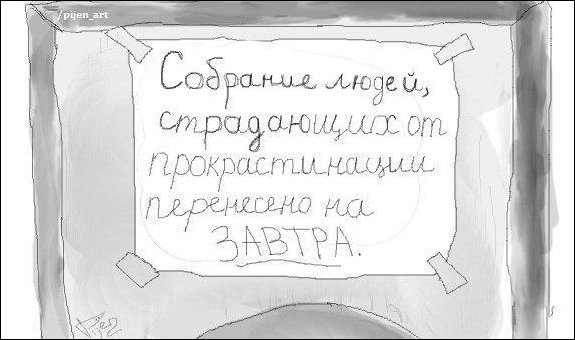 /pijen_art
Собрание людей,
страдающих от
прокрастинации
перенесено на
ЗАВТРА.